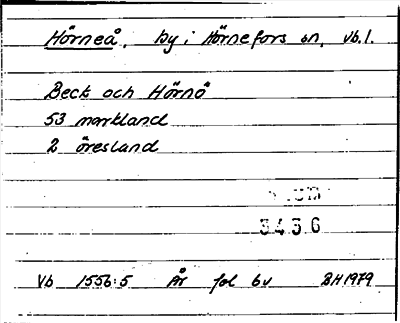 Hörneå, by i Hörnefors sn, Vb.l.
Beck och Hörnö
53 markland
2 öresland
3436
Vb 1556:5 År fol 6v BH1979